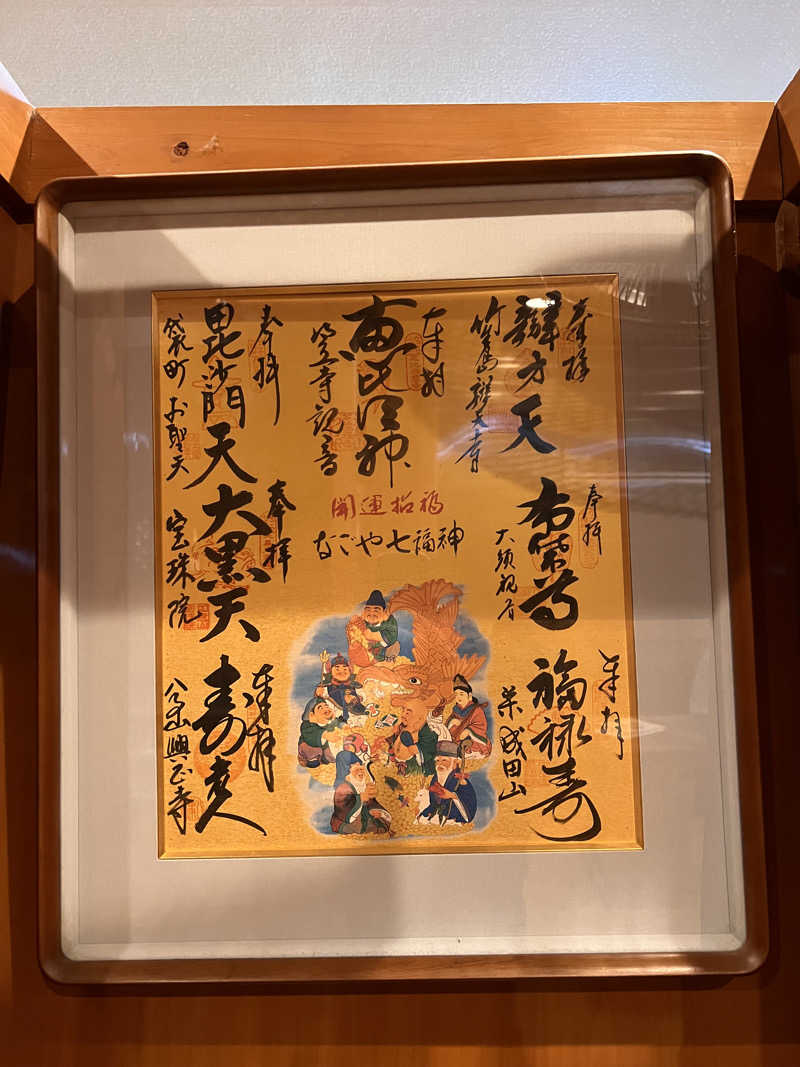 奉拝
辯才天
竹嶌辯天寺
奉拝
恵比須神
笠寺観音
奉拝
毘沙門天
袋町お聖天
開運招福
なごや七福神
奉拝
布袋尊
大須観音
奉拝
大黒天
宝珠院
奉拝
福禄寿
栄成田山
奉拝
寿老人
八事山興正寺